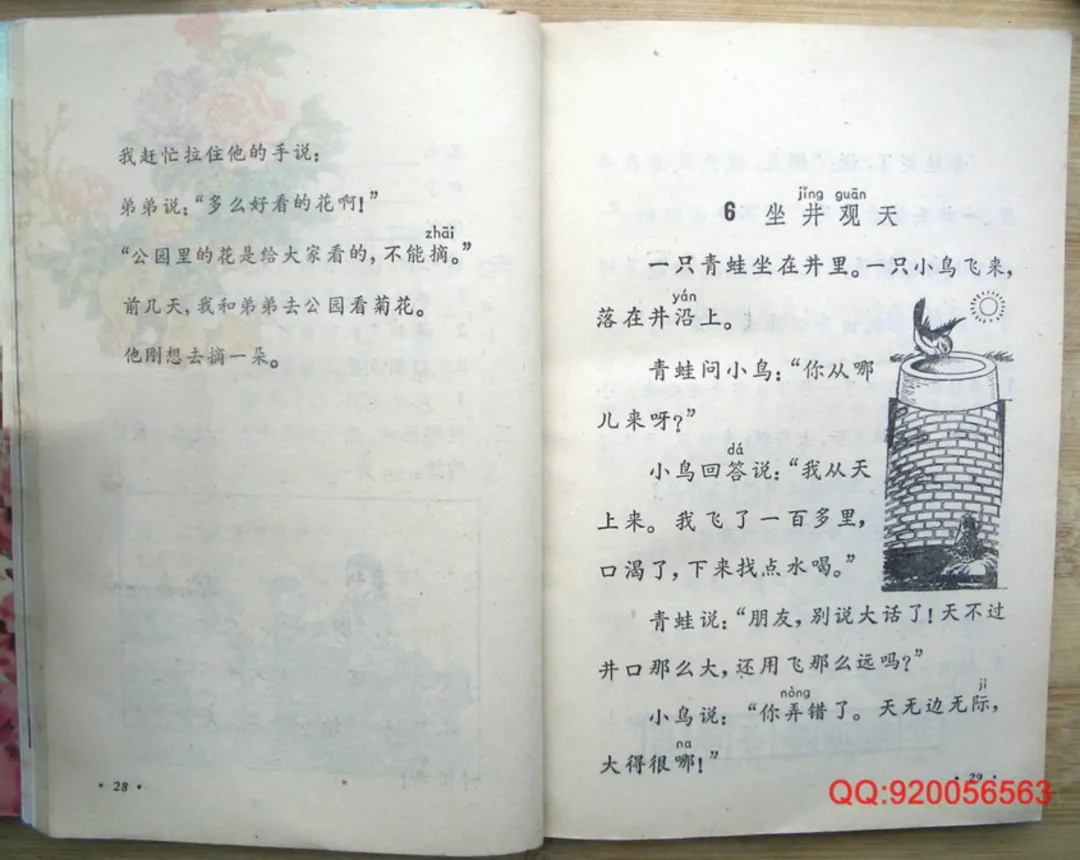 我赶忙拉住他的手说：
弟弟说：“多么好看的花啊！”
zhāi
“公园里的花是给大家看的，不能摘。”
前几天，我和弟弟去公园看菊花。
他刚想去摘一朵。
·28·
jǐng guān
6 坐井观天
一只青蛙坐在井里。一只小鸟飞来，
yán
落在井沿上。
青蛙问小鸟：“你从哪
儿来呀？”
dá
小鸟回答说：“我从天
上来。我飞了一百多里，
口渴了，下来找点水喝。”
青蛙说：“朋友，别说大话了！天不过
井口那么大，还用飞那么远吗？”
nòng jì
小鸟说：“你弄错了。天无边无际，
na
大得很哪！”
·29·
QQ:920056563